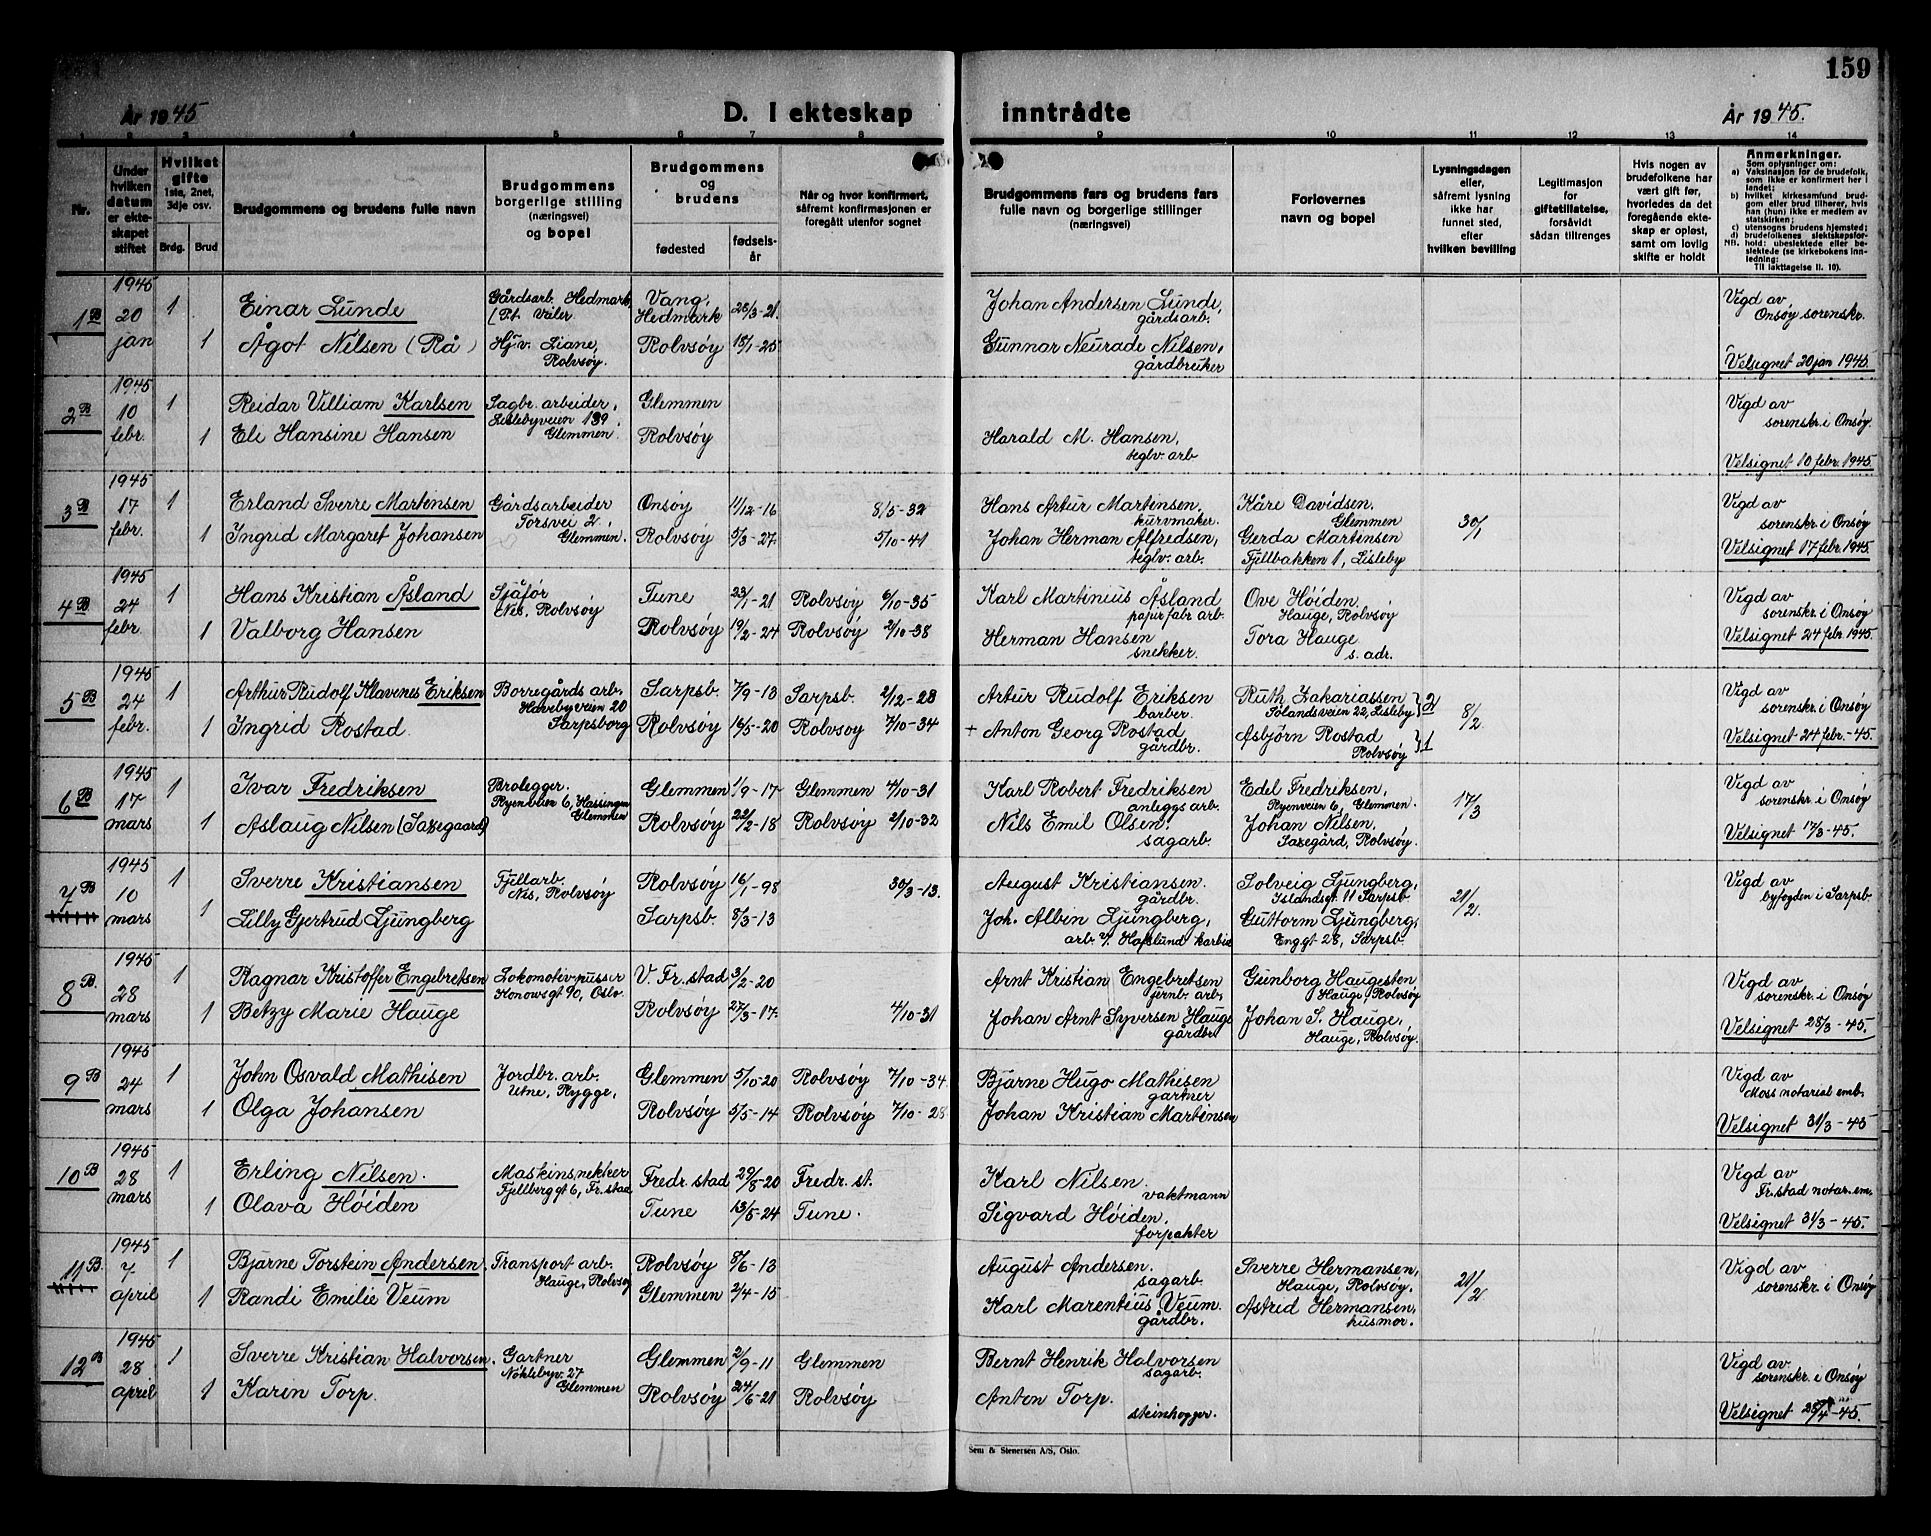 159
År 1945
D. I ekteskap
inntrådte
År 1945.
1 2 3 4 5 6 7 8 9 10 11 12 13 14
Nr.
Under hvilken datum er ekteskapet stiftet
Hvilket gifte
1ste, 2net, 3dje osv.
Brdg. Brud
Brudgommens og brudens fulle navn
Brudgommens borgerlige stilling (næringsvei) og bopel
Brudgommens og brudens
fødested
fødselsår
Når og hvor konfirmert, såfremt konfirmasjonen er foregått utenfor sognet
Brudgommens fars og brudens fars fulle navn og borgerlige stillinger (næringsvei)
Forlovernes navn og bopel
Lysningsdagen eller, såfremt lysning ikke har funnet sted, efter hvilken bevilling
Legitimasjon for giftetillatelse, forsåvidt sådan tiltrenges
Hvis nogen av brudefolkene har vært gift før, hvorledes da det foregående ekteskap er opløst, samt om lovlig skifte er holdt
Anmerkninger.
Som oplysninger om:
a) Vaksinasjon for de brudefolk, som ikke er konfirmert her i landet;
b) hvilket kirkesamfund brudgom eller brud tilhører, hvis han (hun) ikke er medlem av statskirken;
c) utensogns brudens hjemsted;
d) brudefolkenes slektskapsforhold: ubeslektede eller beslektede (se kirkebokens innledning;
NB.
Til iakttagelse II. 10).
1 B 1945 20 jan 1 Einar Lunde Gårdsarb. Hedmark, (P.t. Våler Vang, Hedmark 26/3-21. Johan Andersen Lunde, gårdsarb. Vigd av Onsøy sorenskr.
1 Ågot Nilsen (Rå) Hj.v. Liane, Rolvsøy. Rolvsøy 18/1-25 Gunnar Neurade Nilsen, gårdbruker Velsignet 20 jan 1945.
2 B 1945 10 febr. 1 Reidar Villiam Karlsen Sagbr. arbeider, Lislebyveien 139, Glemmen. Glemmen Vigd av sorenskr. i Onsøy.
1 Eli Hansine Hansen Rolvsøy Harald M. Hansen, teglv. arb Velsignet 10 febr. 1945.
3 B 1945 17 febr. 1 Erland Sverre Martensen Gårdsarbeider Torsvei 2, Glemmen. Onsøy 11/12-16 8/5-32 Hans Artur Martinsen, kurvmaker. Kåre Davidsen, Glemmen 30/1 Vigd av sorenskr. i Onsøy
1 Ingrid Margaret Johansen Rolvsøy 5/3-27. 5/10-41 Johan Herman Alfredsen, teglv. arb. Gerda Martensen Fjellbakken 1, Lisleby Velsignet 17 febr. 1945.
4 B 1945 24 febr. 1 Hans Kristian Åsland Sjåfør Nes, Rolvsøy Tune 23/1-21 Rolvsøy 6/10-35 Karl Martinius Åsland papirfabr. arb. Ove Høiden, Hauge, Rolvsøy Vigd av sorenskr. i Onsøy
1 Valborg Hansen Rolvsøy 19/2-24 Rolvsøy 2/10-38 Herman Hansen snekker. Tora Hauge s. adr. Velsignet 24 febr. 1945.
5 B 1945 24 febr. 1 Arthur Rudolf Klavenes Eriksen Borregårds arb. Havebyveien 20 Sarpsborg Sarpsb. 7/9-13 Sarpsb. 2/12-28 Artur Rudolf Eriksen barber. Ruth Zakariassen Sølandsveien 22, Lisleby } 2 8/2 Vigd av sorenskr. i Onsøy
1 Ingrid Rostad. Rolvsøy 16/5-20 Rolvsøy 7/10-34 + Anton Georg Rostad gårdbr. Asbjørn Rostad Rolvsøy } 1 Velsignet 24 febr.-45.
6 B 1945 17 mars 1 Ivar Fredriksen Brolegger. Ryenveien 6, Hassingen Glemmen Glemmen 1/9-17 Glemmen 4/10-31 Karl Robert Fredriksen anleggs arb. Edel Fredriksen, Ryenveien 6, Glemmen. 17/3 Vigd av sorenskr. i Onsøy
1 Aslaug Nilsen (Saxegaard) Rolvsøy 22/2-18 Rolvsøy 2/10-32 Nils Emil Olsen, sagarb. Johan Nilsen, Saxegård, Rolvsøy. Velsignet 17/3-45.
7 B 1945 10 mars 1 Sverre Kristiansen Fjellarb. Nes, Rolvsøy Rolvsøy 16/1-98 30/3-13. August Kristiansen. gårdbr. Solveig Ljungberg, Islandsgt. 11 Sarpsb. 21/2. Vigd av byfogden i Sarpsb.
1 Lilly Gjertrud Ljungberg Sarpsb. 8/3-13 Joh. Albin Ljungberg, arb. v. Hafslund karbid Guttorm Ljungberg, Enggt 28, Sarpsb.
8 B. 1945 28 mars 1 Ragnar Kristoffer Engebretsen Lokomotivpusser Konowsgt 90, Oslo. V. Fr.stad 3/2-20 Arnt Kristian Engebretsen jernb. arb. Gunborg Haugesten Hauge, Rolvsøy Vigd av sorenskr. i Onsøy
1 Betzy Marie Hauge Rolvsøy 27/3-17. 4/10-31 Johan Arnt Syversen Hauge gårdbr. Johan S. Hauge, Hauge, Rolvsøy. Velsignet 28/3-45.
9 B 1945 24 mars 1 John Osvald Mathisen Jordbr. arb. Utne, Rygge, Glemmen 5/10-20 Rolvsøy 7/10-34. Bjarne Hugo Mathisen gartner Vigd av Moss notarial emb.
1 Olga Johansen Rolvsøy 5/5-14 Rolvsøy 7/10-28 Johan Kristian Martinsen Velsignet 31/3-45
10 B 1945 28 mars 1 Erling Nilsen. Maskinsnekker Fjellberggt 6, Fr.stad Fredr.stad 29/8-20 Fredr.st. Karl Nilsen. vaktmann Vigd av Fr.stad notar. em.
1 Olava Høiden Tune 13/5-24 Tune. Sigvard Høiden, forpakter Velsignet 31/3-45.
11 B. 1945 7 april 1 Bjarne Torstein Andersen. Transport arb. Hauge, Rolvsøy Rolvsøy 8/6-13 August Andersen. sagarb. Sverre Hermansen, Hauge, Rolvsøy. 21/2 Vigd av sorenskr. i Onsøy
1 Randi Emilie Veum Glemmen 2/4-15 Karl Marentius Veum. gårdbr. Astrid Hermansen, husmor.
12 B 1945 28 april 1 Sverre Kristian Halvorsen. Gartner Nöklebyv. 27 Glemmen Glemmen 2/9-11 Glemmen Bernt Henrik Halvorsen sagarb. Vigd av sorenskr. i Onsøy
1 Karin Torp. Rolvsøy 24/6-21 Rolvsøy Anton Torp. steinhogger. Velsignet 28/4-45.
Sem & Stenersen A/S, Oslo.